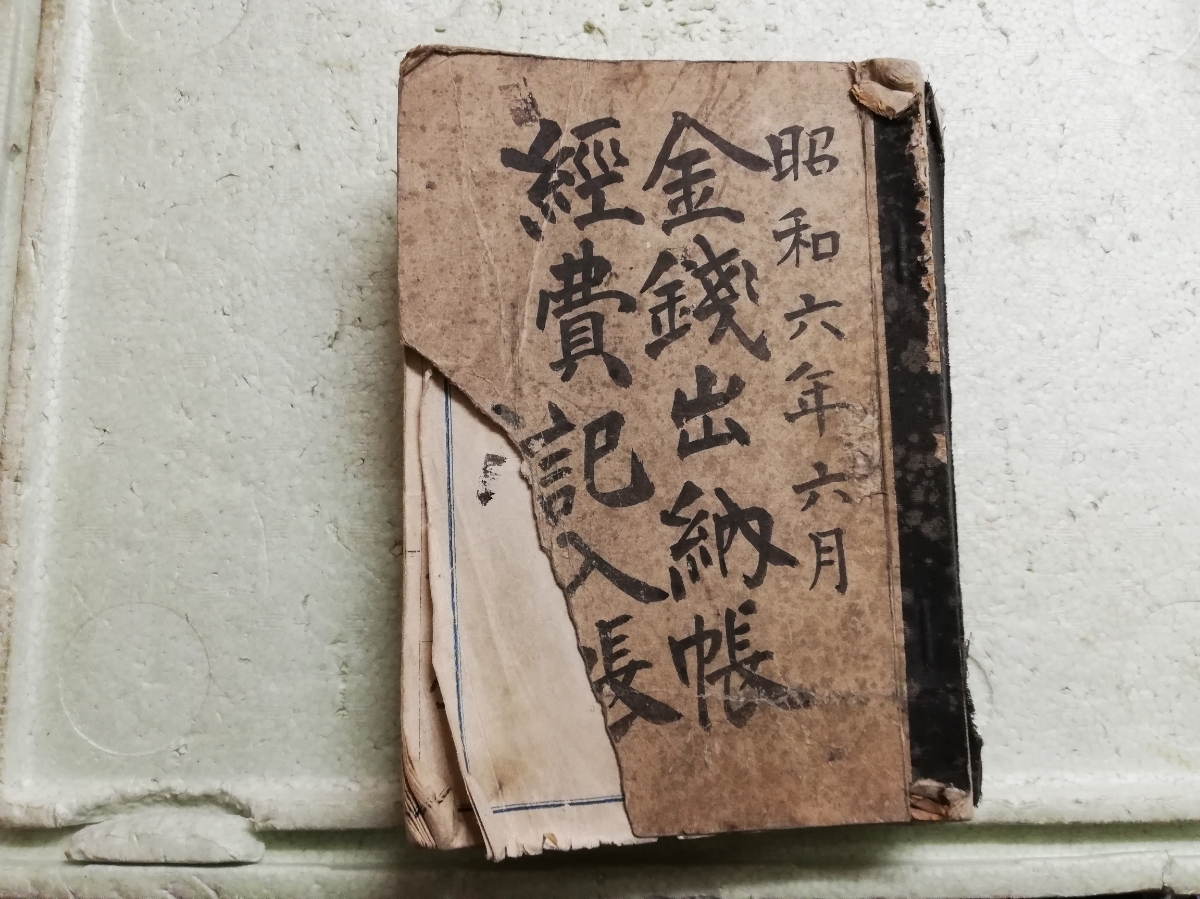 昭和六年六月
金錢出納帳
經費記入帳